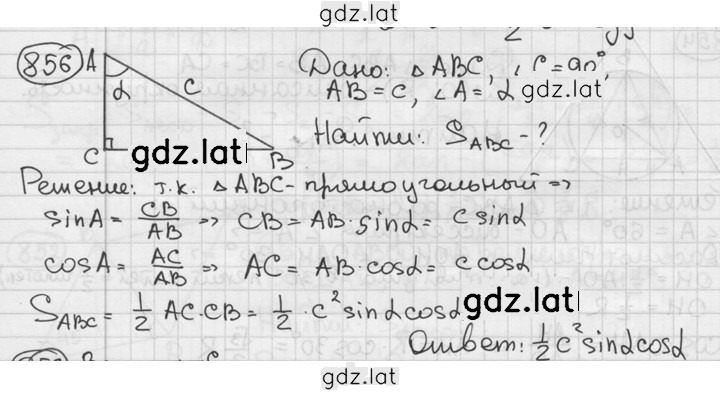 gdz.lat
856 A
α
c
C
B
gdz.lat
Дано: △ABC, ∠C=90°,
AB=c, ∠A=α
gdz.lat
Найти: S_ABC - ?
Решение: т.к. △ABC - прямоугольный =>
sinA = CB/AB => CB = AB·sinα = c sinα
cosA = AC/AB => AC = AB·cosα = c cosα
S_ABC = 1/2 AC·CB = 1/2 · c² sinα cosα
gdz.lat
Ответ: 1/2 c² sinα cosα
gdz.lat